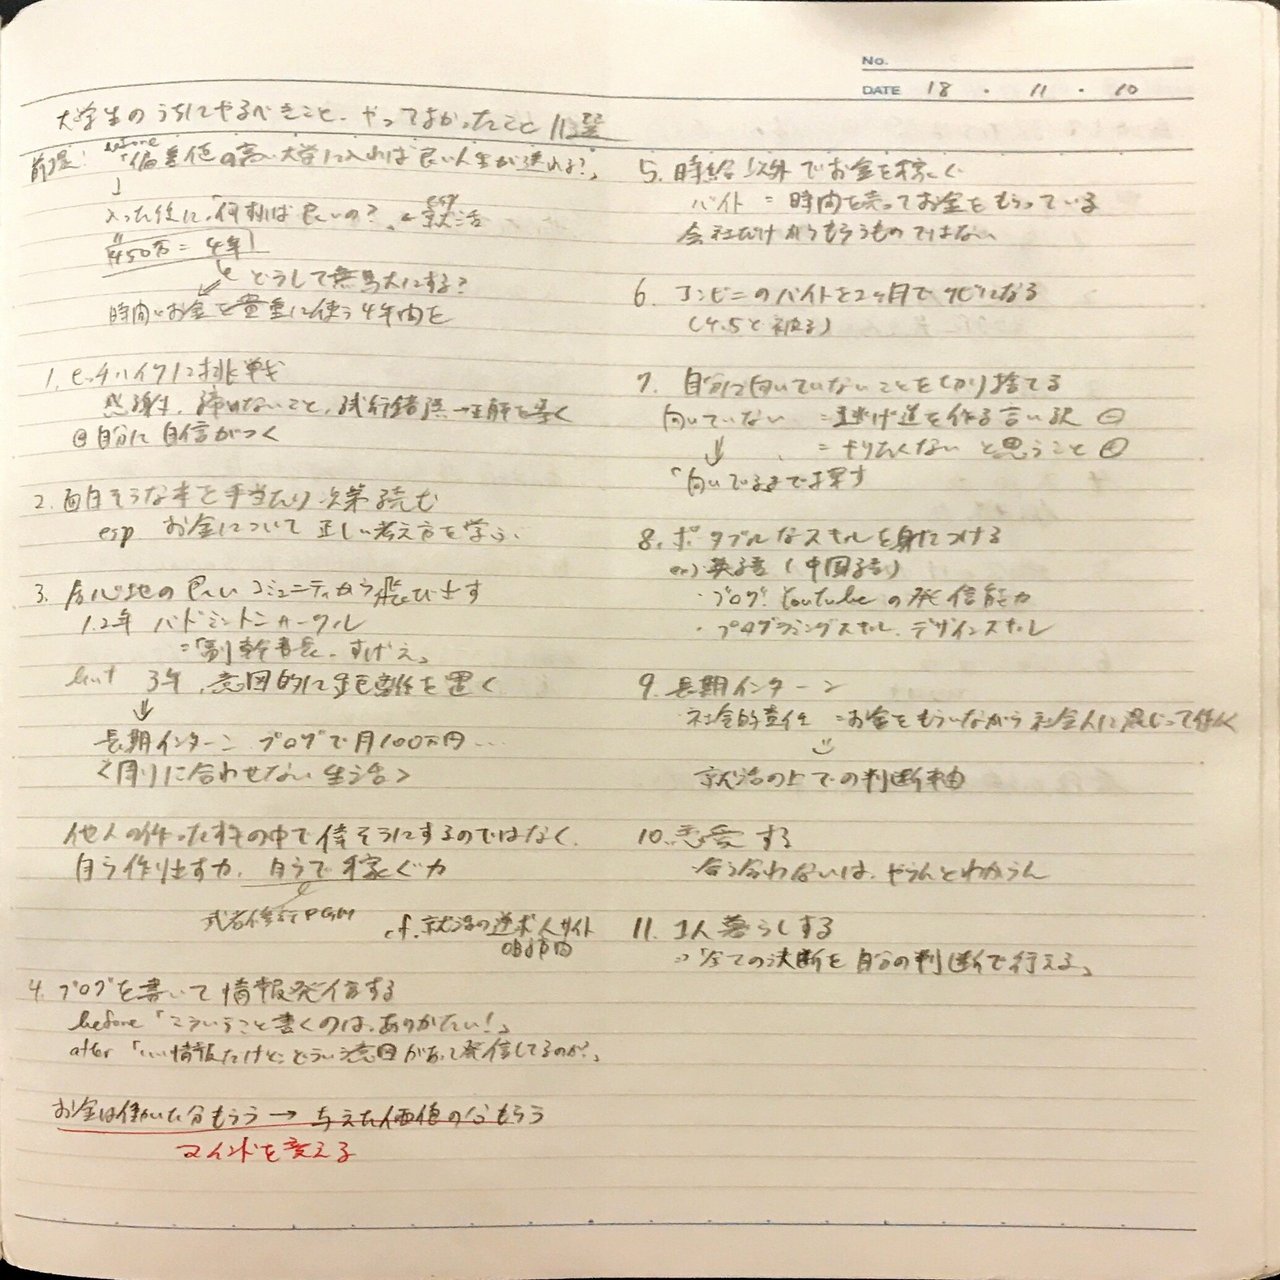 No.
DATE 18 . 11 . 10
大学生のうちにやるべきこと、やってよかったこと 11選
before
前提: 「偏差値の高い大学に入れば良い人生が送れる?」
↓
入った後に、何すれば良いの? ← esp 就活
450万 = 4年
どうして無駄にする?
時間とお金を貴重に使う4年間を
1. ヒッチハイクに挑戦
感謝、諦めないこと、試行錯誤→正解を導く
自分に自信がつく
2. 面白そうな本を手当たり次第読む
esp お金について正しい考え方を学ぶ
3. 居心地の良いコミュニティから飛び出す
1.2年 バドミントンサークル
=「副幹事長、すげえ」
but 3年 意図的に距離を置く
↓
長期インターン ブログで月100万円…
<周りに合わせない生活>
他人の作った才の中で偉そうにするのではなく、
自ら作り出す力、自らで稼ぐ力
武者修行PGM
cf. 就活の逆求人サイト
OB訪問
4. ブログを書いて情報発信する
before 「こういうこと書くのは、ありがたい!」
after 「いい情報だけど、どういう意図があって発信してるのか?」
お金は働いた分もらう → 与えた価値の分もらう
マインドを変える
5. 時給以外でお金を稼ぐ
バイト = 時間を売ってお金をもらっている
会社だけからもらうものではない
6. コンビニのバイトを2ヶ月でクビになる
(4.5と被る)
7. 自分に向いていないことを切り捨てる
向いていない = 逃げ道を作る言い訳 ⊖
= やりたくないと思うこと ⊕
↓
「向いてるまで探す
8. ポータブルなスキルを身につける
ex) 英語 (中国語)
・ブログ、Youtubeの発信能力
・プログラミングスキル、デザインスキル
9. 長期インターン
社会的責任 = お金をもらいながら社会人に混じって働く
就活の上での判断軸
10. 恋愛する
合う合わないは、やらんとわからん
11. 1人暮らしする
⇒「全ての決断を自分の判断で行える」